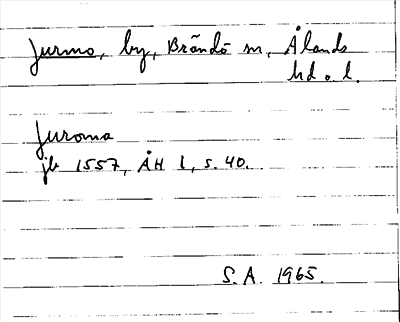 Jurmo, by, Brändö sn, Ålands
hd o. l.
Juroma
jb 1557, ÅH 1, s. 40.
S.A. 1965.